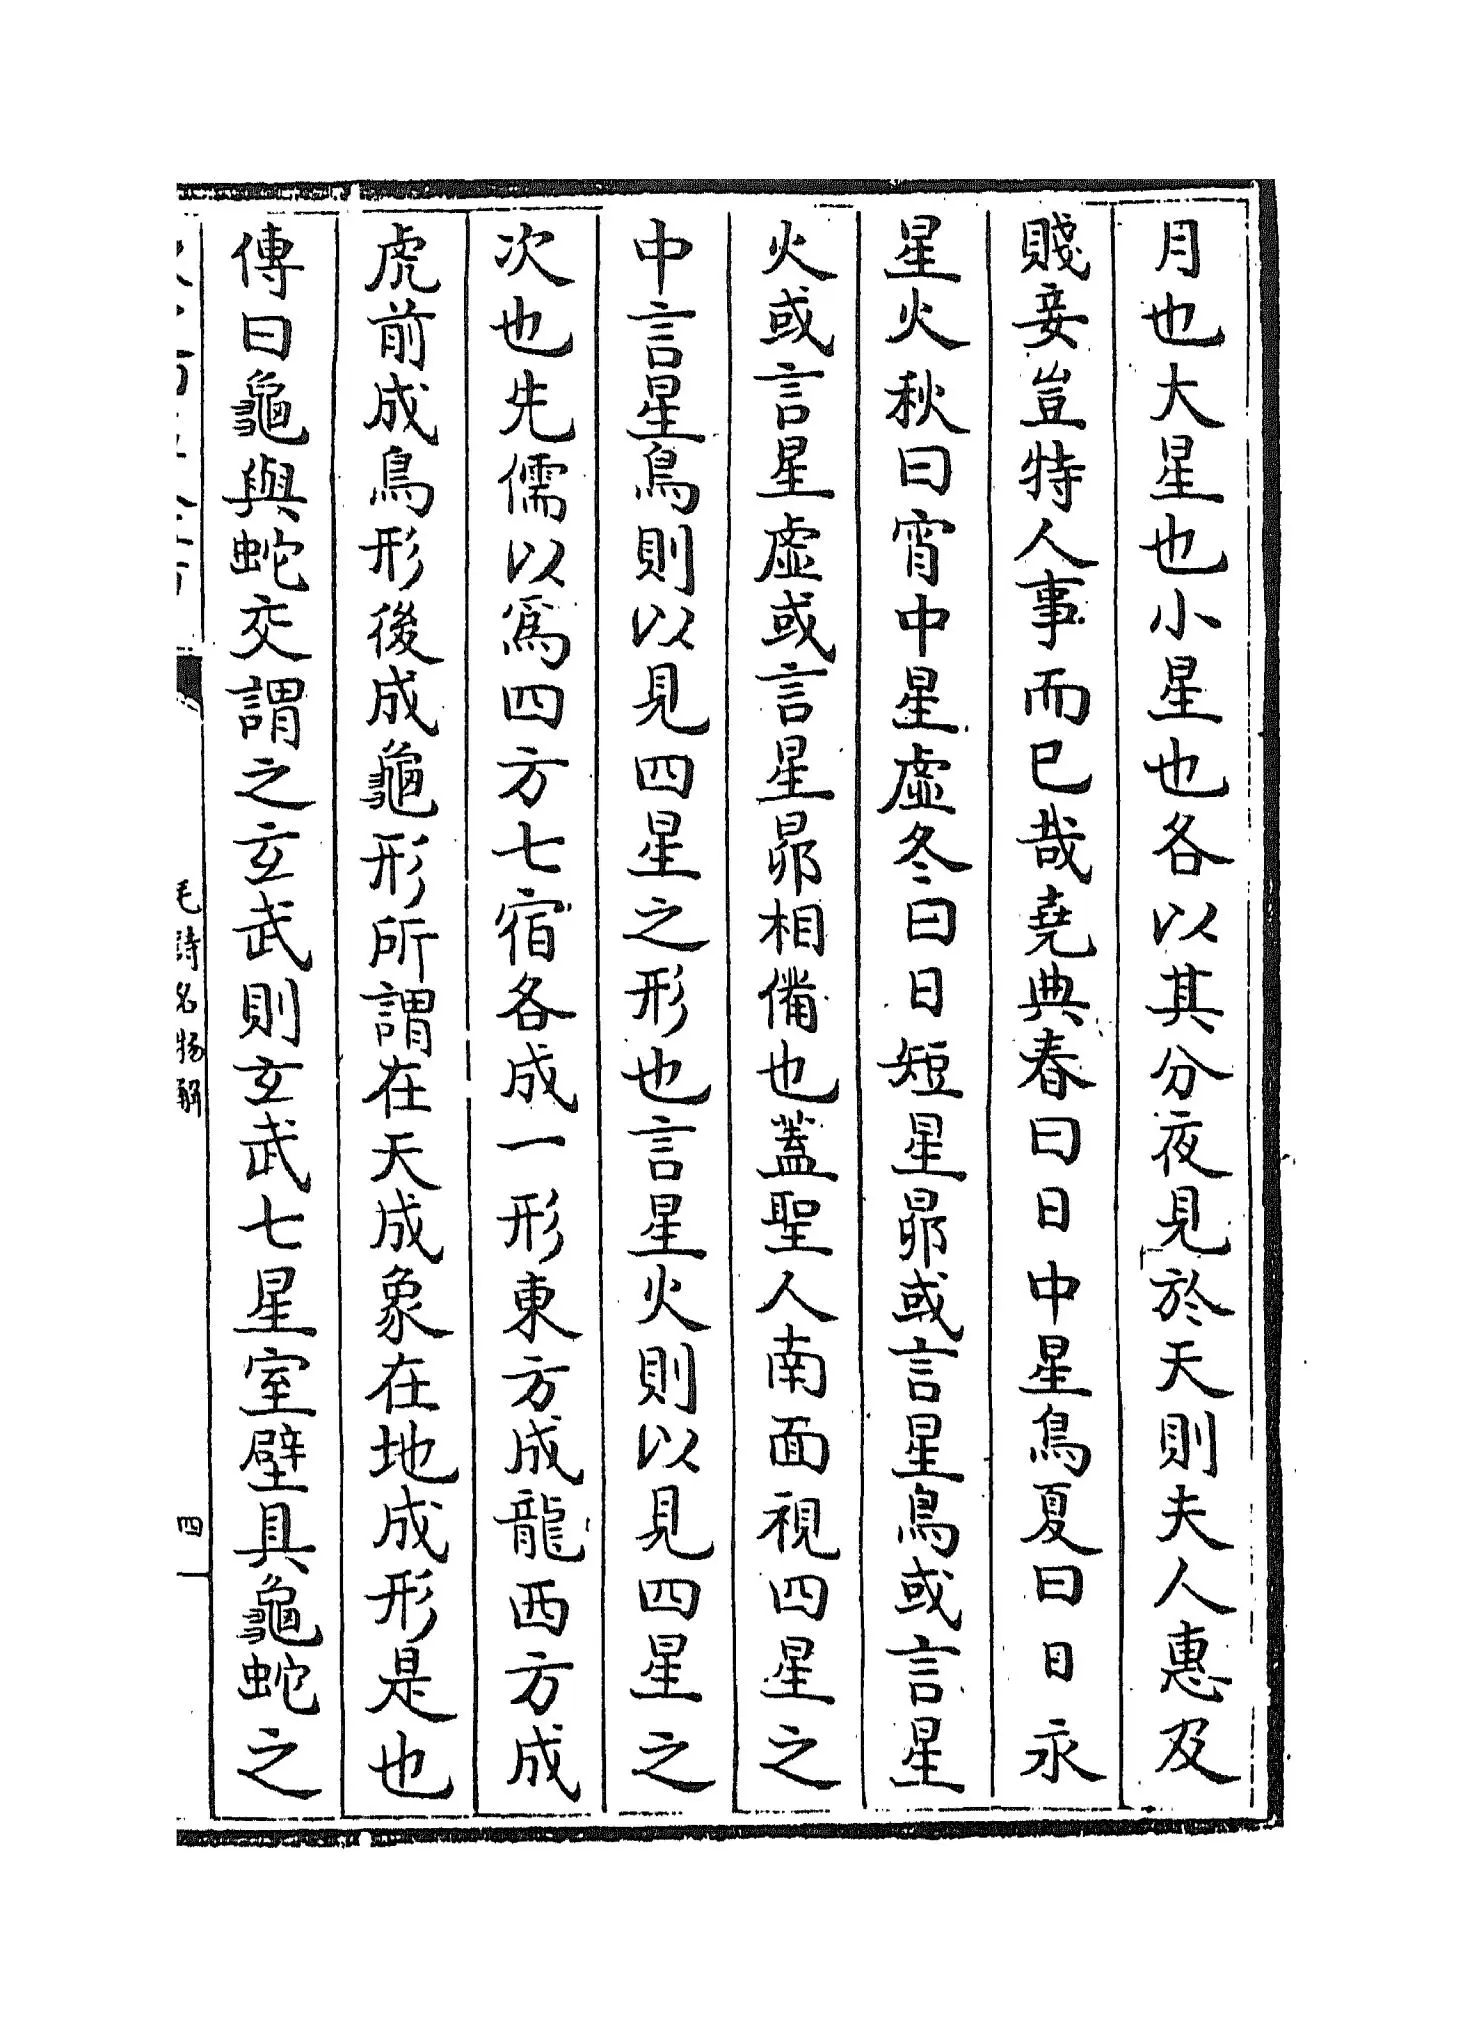 月也大星也小星也各以其分夜見於天則夫人惠及
賤妾豈特人事而已哉堯典春曰日中星鳥夏曰日永
星火秋曰宵中星虛冬曰日短星昴或言星鳥或言星
火或言星虛或言星昴相備也蓋聖人南面視四星之
中言星鳥則以見四星之形也言星火則以見四星之
次也先儒以爲四方七宿各成一形東方成龍西方成
虎前成鳥形後成龜形所謂在天成象在地成形是也
傳曰龜與蛇交謂之玄武則玄武七星室壁具龜蛇之
毛詩名物解
四